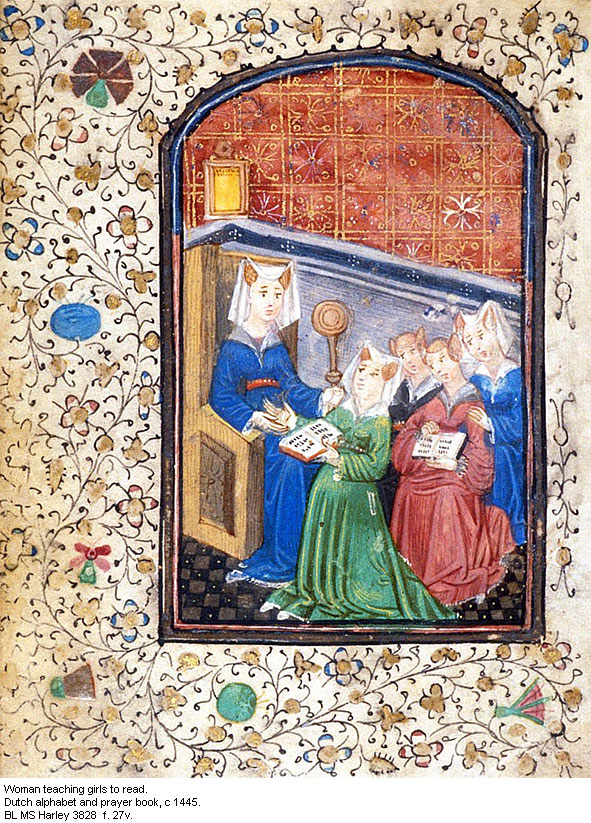 Woman teaching girls to read.
Dutch alphabet and prayer book, c 1445.
BL MS Harley 3828 f. 27v.